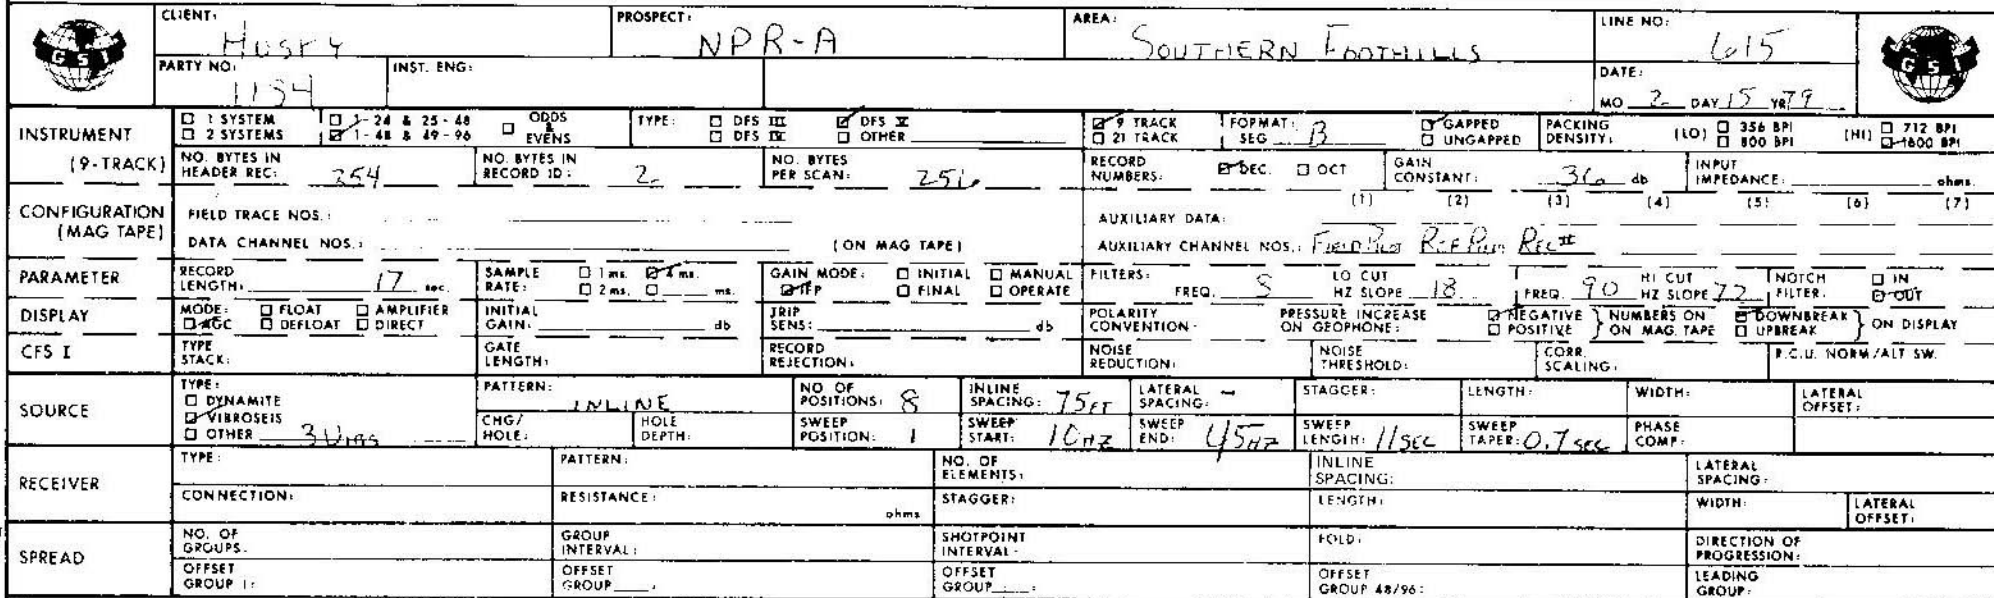 GSI
CLIENT: Husky
PROSPECT: NPR-A
AREA: SOUTHERN FOOTHILLS
LINE NO: 615
GSI
PARTY NO: 1184
INST. ENG:
DATE:
MO 2 DAY 15 YR 79
INSTRUMENT
(9-TRACK)
☐ 1 SYSTEM
☐ 2 SYSTEMS
☐ 1-24 & 25-48
☑ 1-48 & 49-96
☐ ODDS & EVENS
TYPE: ☐ DFS III ☑ DFS V
☐ DFS IV ☐ OTHER
☑ 9 TRACK
☐ 21 TRACK
FORMAT: SEG B
☑ GAPPED
☐ UNGAPPED
PACKING DENSITY: (LO) ☐ 356 BPI ☐ 800 BPI (HI) ☐ 712 BPI ☑ 1600 BPI
NO. BYTES IN HEADER REC: 254
NO. BYTES IN RECORD ID: 2
NO. BYTES PER SCAN: 256
RECORD NUMBERS: ☑ DEC. ☐ OCT
GAIN CONSTANT: 36 db
INPUT IMPEDANCE: ohms.
CONFIGURATION
(MAG TAPE)
FIELD TRACE NOS.:
DATA CHANNEL NOS.: (ON MAG TAPE)
(1) (2) (3) (4) (5) (6) (7)
AUXILIARY DATA:
AUXILIARY CHANNEL NOS.: FIELD PILOT REF PILOT REC II
PARAMETER
RECORD LENGTH: 17 sec.
SAMPLE RATE: ☐ 1 ms. ☑ 4 ms. ☐ 2 ms. ☐ ms.
GAIN MODE: ☐ INITIAL ☐ MANUAL
☑ IFP ☐ FINAL ☐ OPERATE
FILTERS: FREQ. 8 LO CUT HZ SLOPE 18
FREQ. 90 HI CUT HZ SLOPE 72
NOTCH FILTER. ☐ IN ☑ OUT
DISPLAY
MODE: ☐ FLOAT ☐ AMPLIFIER
☑ AGC ☐ DEFLOAT ☐ DIRECT
INITIAL GAIN: db
TRIP SENS: db
POLARITY CONVENTION-
PRESSURE INCREASE ON GEOPHONE: ☑ NEGATIVE ☐ POSITIVE } NUMBERS ON ON MAG. TAPE ☑ DOWNBREAK ☐ UPBREAK } ON DISPLAY
CFS I
TYPE STACK:
GATE LENGTH:
RECORD REJECTION:
NOISE REDUCTION:
NOISE THRESHOLD:
CORR. SCALING:
P.C.U. NORM/ALT SW.
SOURCE
TYPE:
☐ DYNAMITE
☑ VIBROSEIS
☐ OTHER 3 VIBS
PATTERN: INLINE
NO. OF POSITIONS: 8
INLINE SPACING: 75 FT
LATERAL SPACING: -
STAGGER:
LENGTH:
WIDTH:
LATERAL OFFSET:
CHG/HOLE:
HOLE DEPTH:
SWEEP POSITION: 1
SWEEP START: 10 HZ
SWEEP END: 45 HZ
SWEEP LENGTH: 11 SEC
SWEEP TAPER: 0.7 SEC
PHASE COMP:
RECEIVER
TYPE:
PATTERN:
NO. OF ELEMENTS:
INLINE SPACING:
LATERAL SPACING:
CONNECTION:
RESISTANCE: ohms
STAGGER:
LENGTH:
WIDTH:
LATERAL OFFSET:
SPREAD
NO. OF GROUPS.
GROUP INTERVAL:
SHOTPOINT INTERVAL-
FOLD:
DIRECTION OF PROGRESSION:
OFFSET GROUP 1:
OFFSET GROUP ___:
OFFSET GROUP ___:
OFFSET GROUP 48/96:
LEADING GROUP: